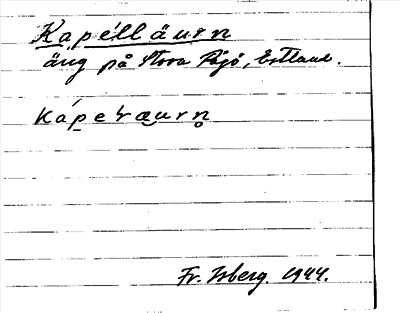 Kapélläurn
äng på Stora Rågö, Estland.
kápeꞎæurn̥
Fr. Isberg. 1944.